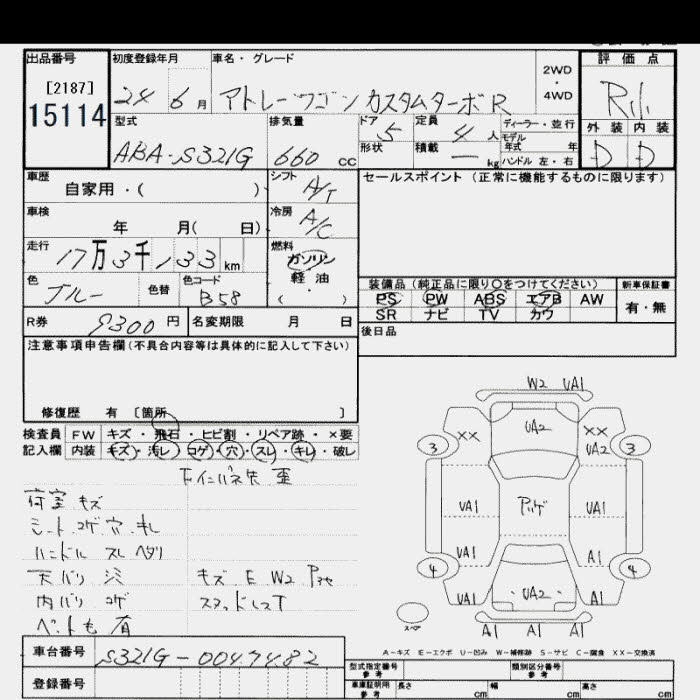 出品番号
[2187]
15114
初度登録年月
24 6月
車名・グレード
アトレーワゴン カスタムターボR
2WD
・
4WD
評価点
R
外装 内装
D D
型式
ABA-S321G
排気量
660 cc
ドア
5
形状
定員
4人
積載
— kg
ディーラー・並行
モデル
年式 年
ハンドル 左・右
車歴
自家用・( )
シフト
A/T
車検
年 月( 日)
冷房
A/C
走行
17万3千133km
燃料
ガソリン
軽油
( )
色
ブルー
色替
色コード
B58
R券
9300円
名変期限 月 日
セールスポイント(正常に機能するものに限ります)
装備品(純正品に限り〇をつけてください)
PS PW ABS エアB AW
SR ナビ TV カワ
新車保証書
有・無
後日品
注意事項申告欄(不具合内容等は具体的に記入して下さい)
修復歴 有 〔箇所 〕
検査員 FW キズ・飛石・ヒビ割・リペア跡・×要
記入欄 内装 キズ・汚レ・コゲ・穴・スレ・キレ・破レ
荷室 キズ
シート コゲ 穴 キレ
ハンドル スレ ヘタリ
天バリ
内バリ コゲ
有
キズ E W2
W2 UA1
XX UA2 XX
UA2
3 3
UA1 UA1
UA1 A1
4 4
UA1 UA2 A1
A1 A1 A1
スペア
A-キズ E-エクボ U-凹み W-補修跡 S-サビ C-腐食 XX-交換済
車台番号
S321G-0047482
登録番号
型式指定番号
参考
類別区分番号
参考
車庫証明用
参考
長さ cm
幅 cm
高さ cm